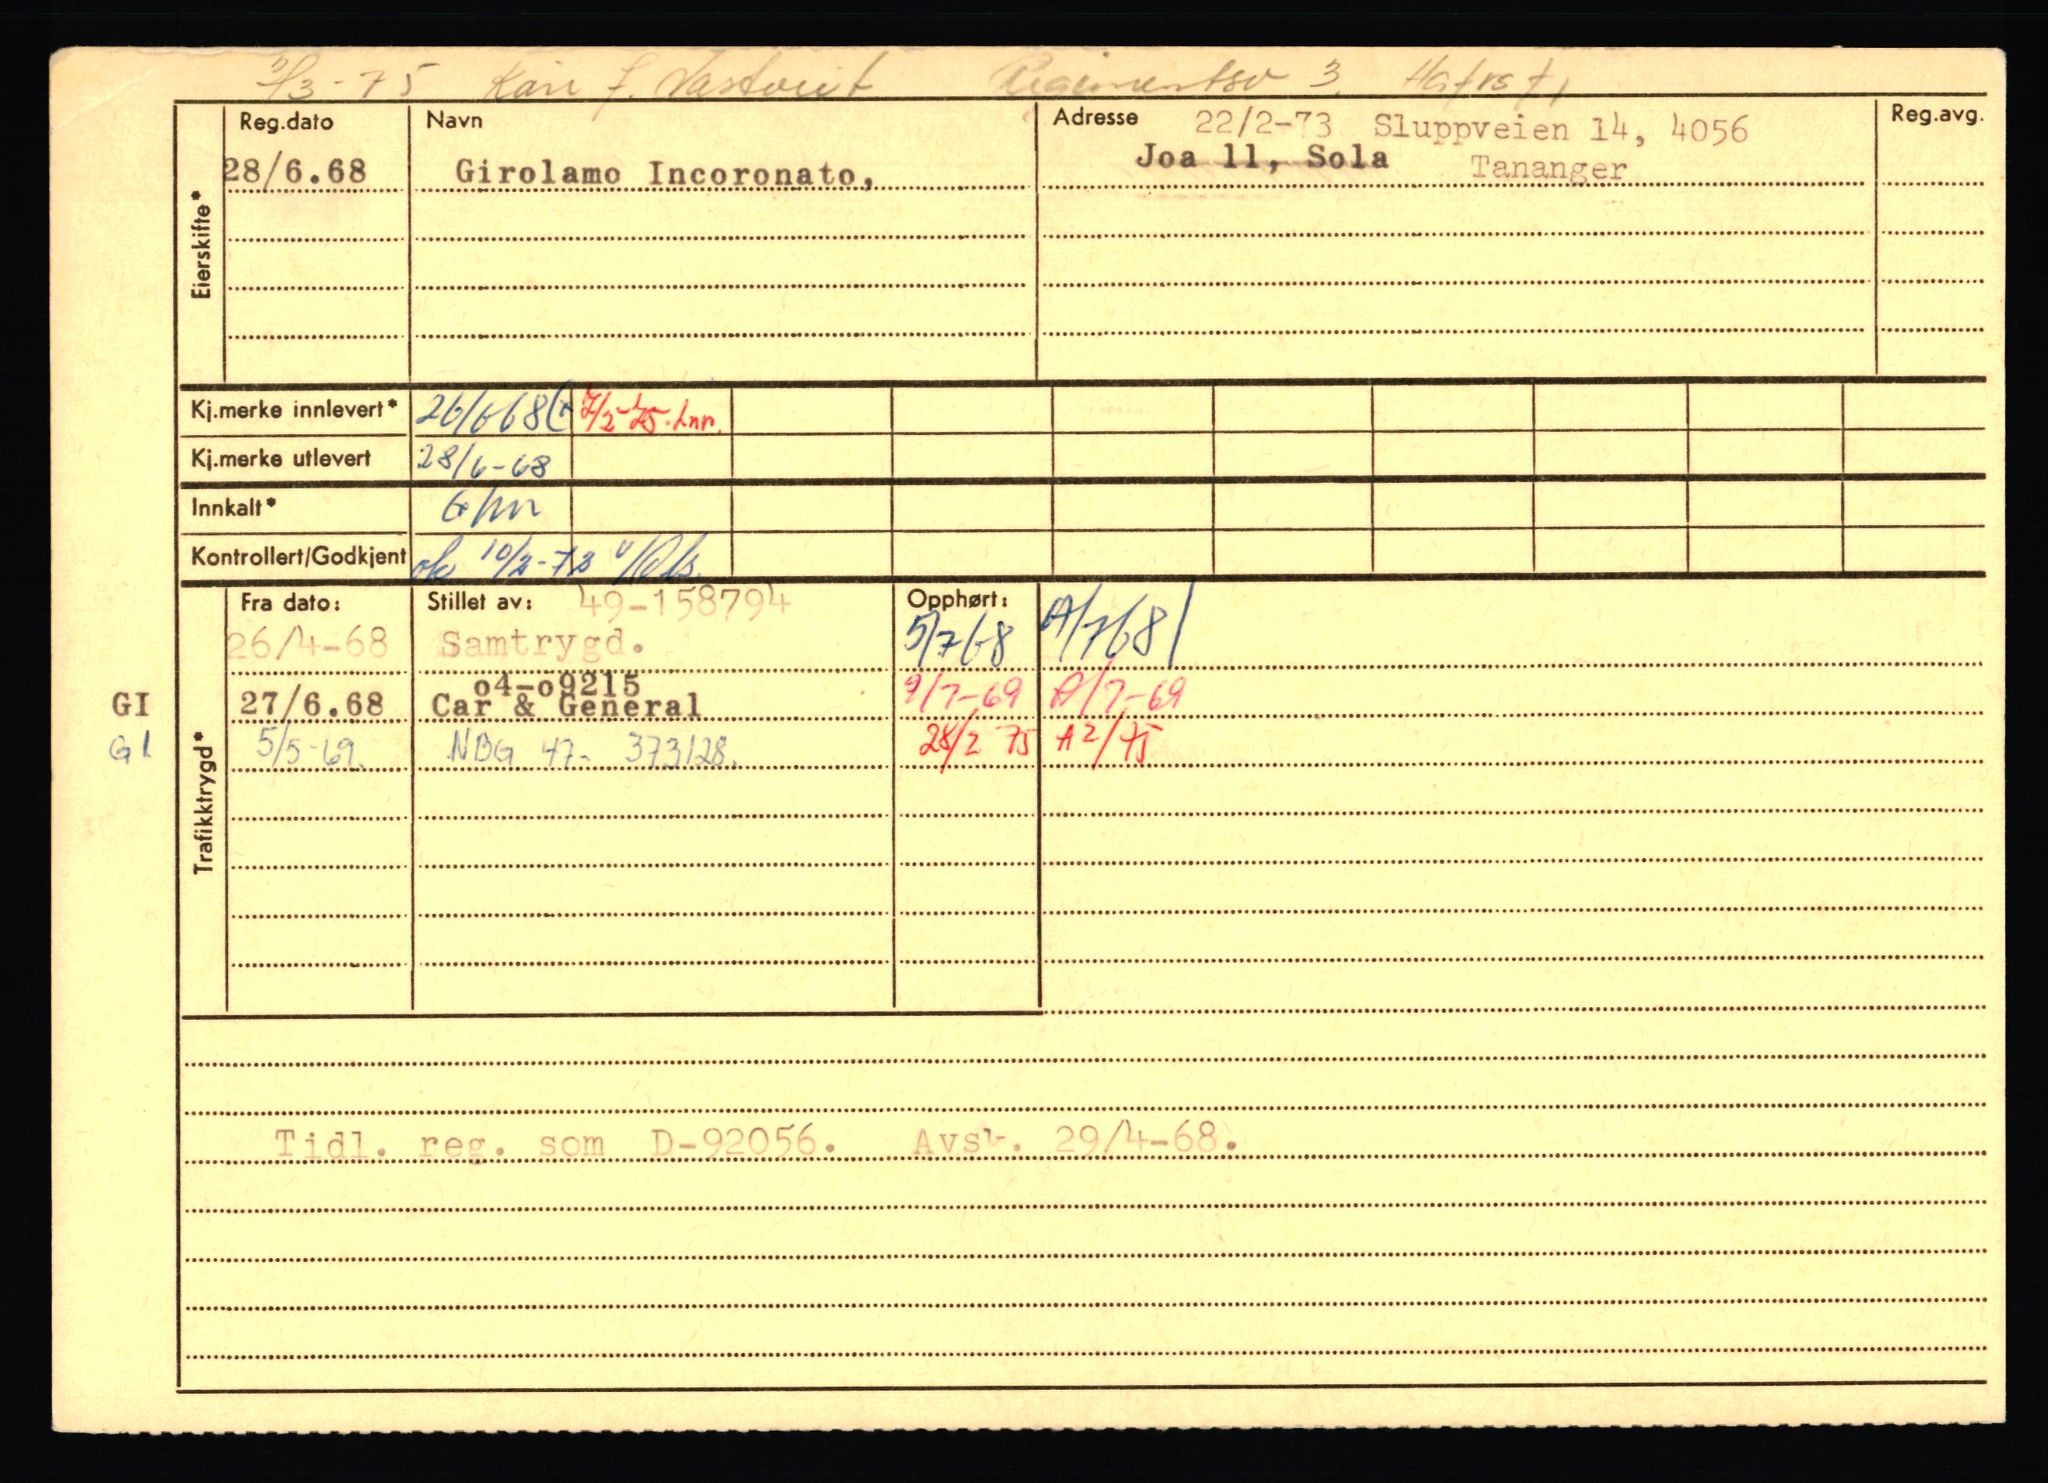 3/3-75 Kåre J. Regimentsv 3. Hafrsfj
Reg.dato Navn Adresse 22/2-73 Sluppveien 14, 4056 Reg.avg.
28/6.68 Girolamo Incoronato, Joa 11, Sola Tananger
Eierskifte*
Kj.merke innlevert* 26/6 68 7/2-75.
Kj.merke utlevert 28/6-68
Innkalt*
Kontrollert/Godkjent ok 10/2-72
Fra dato: Stillet av: 49-158794 Opphørt:
26/4-68 Samtrygd. 5/7 68 A/7 68
o4-o9215
GI 27/6.68 Car & General 9/7-69 A/7-69
GI 5/5-69. NBG 47- 373128. 28/2 75 A 2/75
Trafikktrygd*
Tidl. reg. som D-92056. Avsk. 29/4-68.